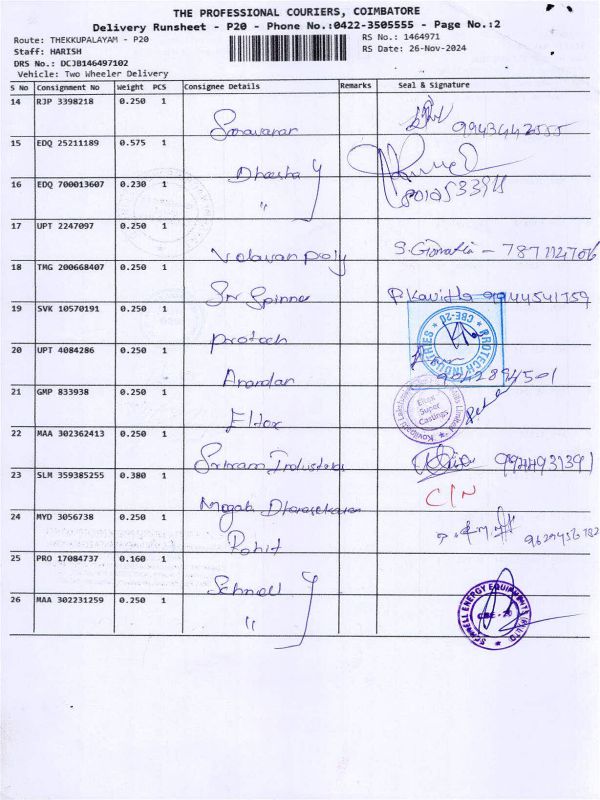 THE PROFESSIONAL COURIERS, COIMBATORE
Delivery Runsheet - P20 - Phone No.:0422-3505555 - Page No.:2
Route: THEKKUPALAYAM - P20
RS No.: 1464971
Staff: HARISH
RS Date: 26-Nov-2024
DRS No.: DCJB146497102
Vehicle: Two Wheeler Delivery
S No Consignment No Weight PCS Consignee Details Remarks Seal & Signature
14 RJP 3398218 0.250 1
Saravanan 9943442555
15 EDQ 25211189 0.575 1
16 EDQ 700013607 0.230 1
"
17 UPT 2247097 0.250 1
Velavan Poly 7871124706
18 TMG 200668407 0.250 1
Sri Spinner P. Kavitha 9944541759
19 SVK 10570191 0.250 1
Protech
PROTECH INDUSTRIES
CBE-20
20 UPT 4084286 0.250 1
Anandan
21 GMP 833938 0.250 1
Eltex
Eltex
Super
Castings
22 MAA 302362413 0.250 1
Sriram Industries
23 SLM 359385255 0.380 1
C/N
24 MYD 3056738 0.250 1
Rohit
25 PRO 17084737 0.160 1
Schnell
26 MAA 302231259 0.250 1
"
SCHNELL ENERGY EQUIPMENTS (P) LTD
CBE - 20